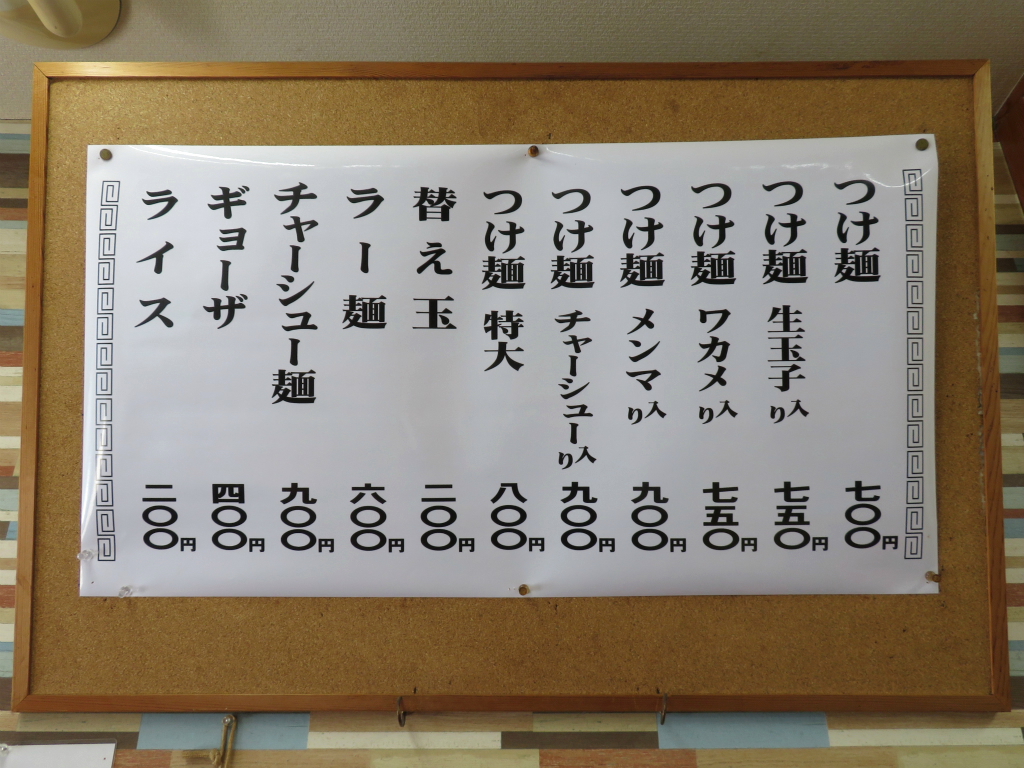 つけ麺 七〇〇円
つけ麺 生玉子入り 七五〇円
つけ麺 ワカメ入り 七五〇円
つけ麺 メンマ入り 九〇〇円
つけ麺 チャーシュー入り 九〇〇円
つけ麺 特大 八〇〇円
替え玉 二〇〇円
ラー麺 六〇〇円
チャーシュー麺 九〇〇円
ギョーザ 四〇〇円
ライス 二〇〇円